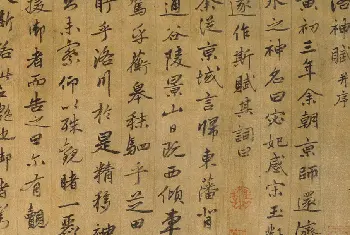 洛神賦 并序
黄初三年余朝京師還濟
水之神名曰宓妃感宋玉對
遂作斯賦其詞曰
余從京域言歸東藩背
通谷陵景山日既西傾車
駕乎蘅皋秣駟乎芝田
眄乎洛川於是精移神
未察仰以殊觀睹一麗
援御者而告之曰尔有覿
斯若此之艷也御者